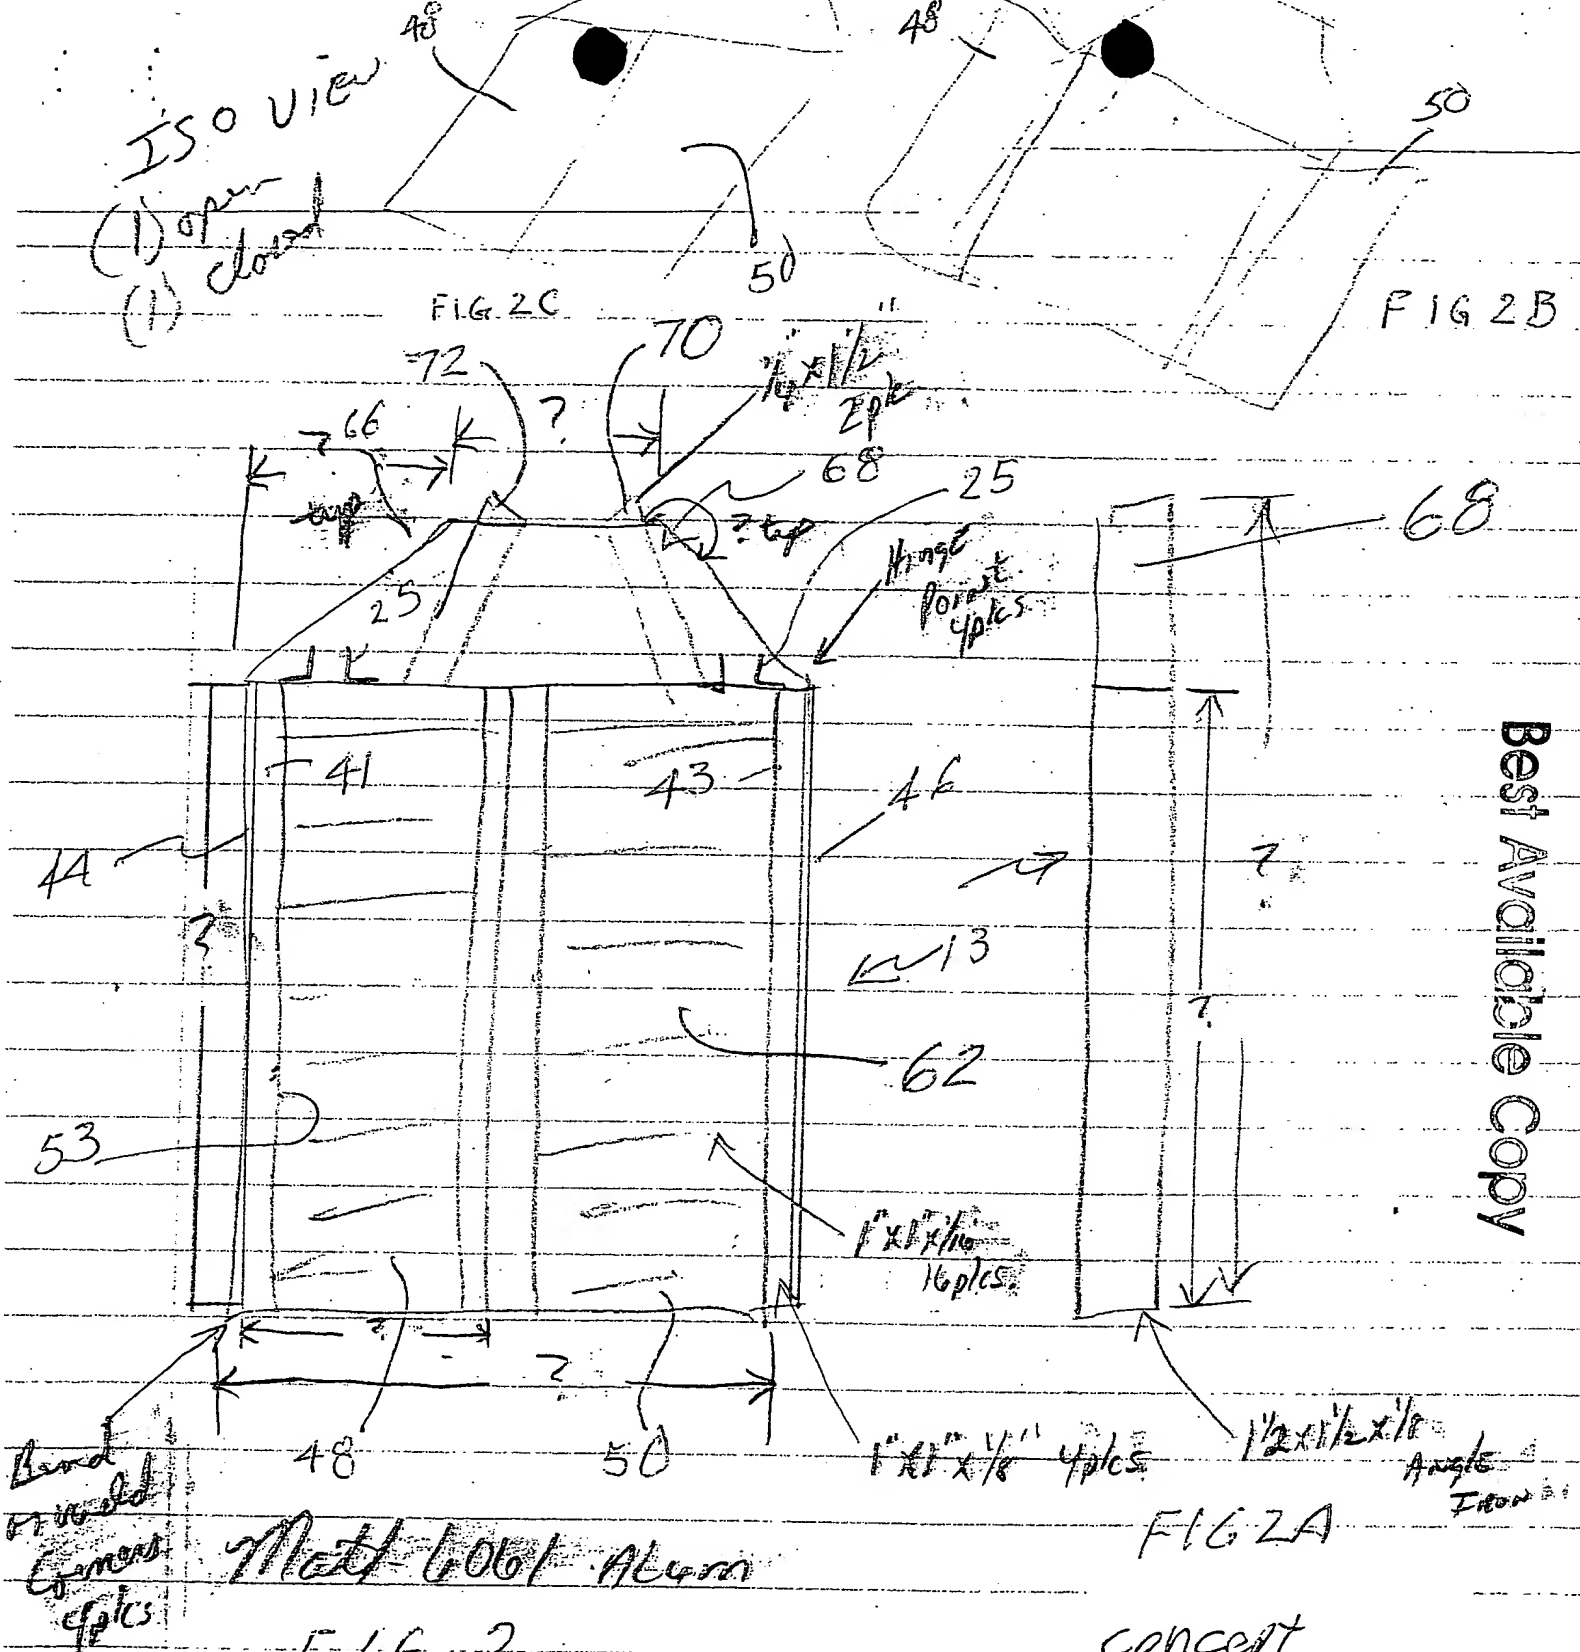 48
48
ISO VIEW
50
(1) open
(1) closed
50
FIG. 2C
FIG 2B
70
72
1/4" x 1 1/2"
2plc
? 66
?
68
25
typ
? typ
68
Hinge
Point
4plcs
25
41
43
46
44
?
?
13
?
62
53
1" x 1" x 1/16
16 plcs.
?
?
48
50
1" x 1" x 1/8" 4plcs
1 1/2 x 1 1/2 x 1/8
Angle
Iron
Bend
or weld
Corners
4plcs
Matl 6061 Alum
FIG 2A
FIG 2
concept
Best Available Copy